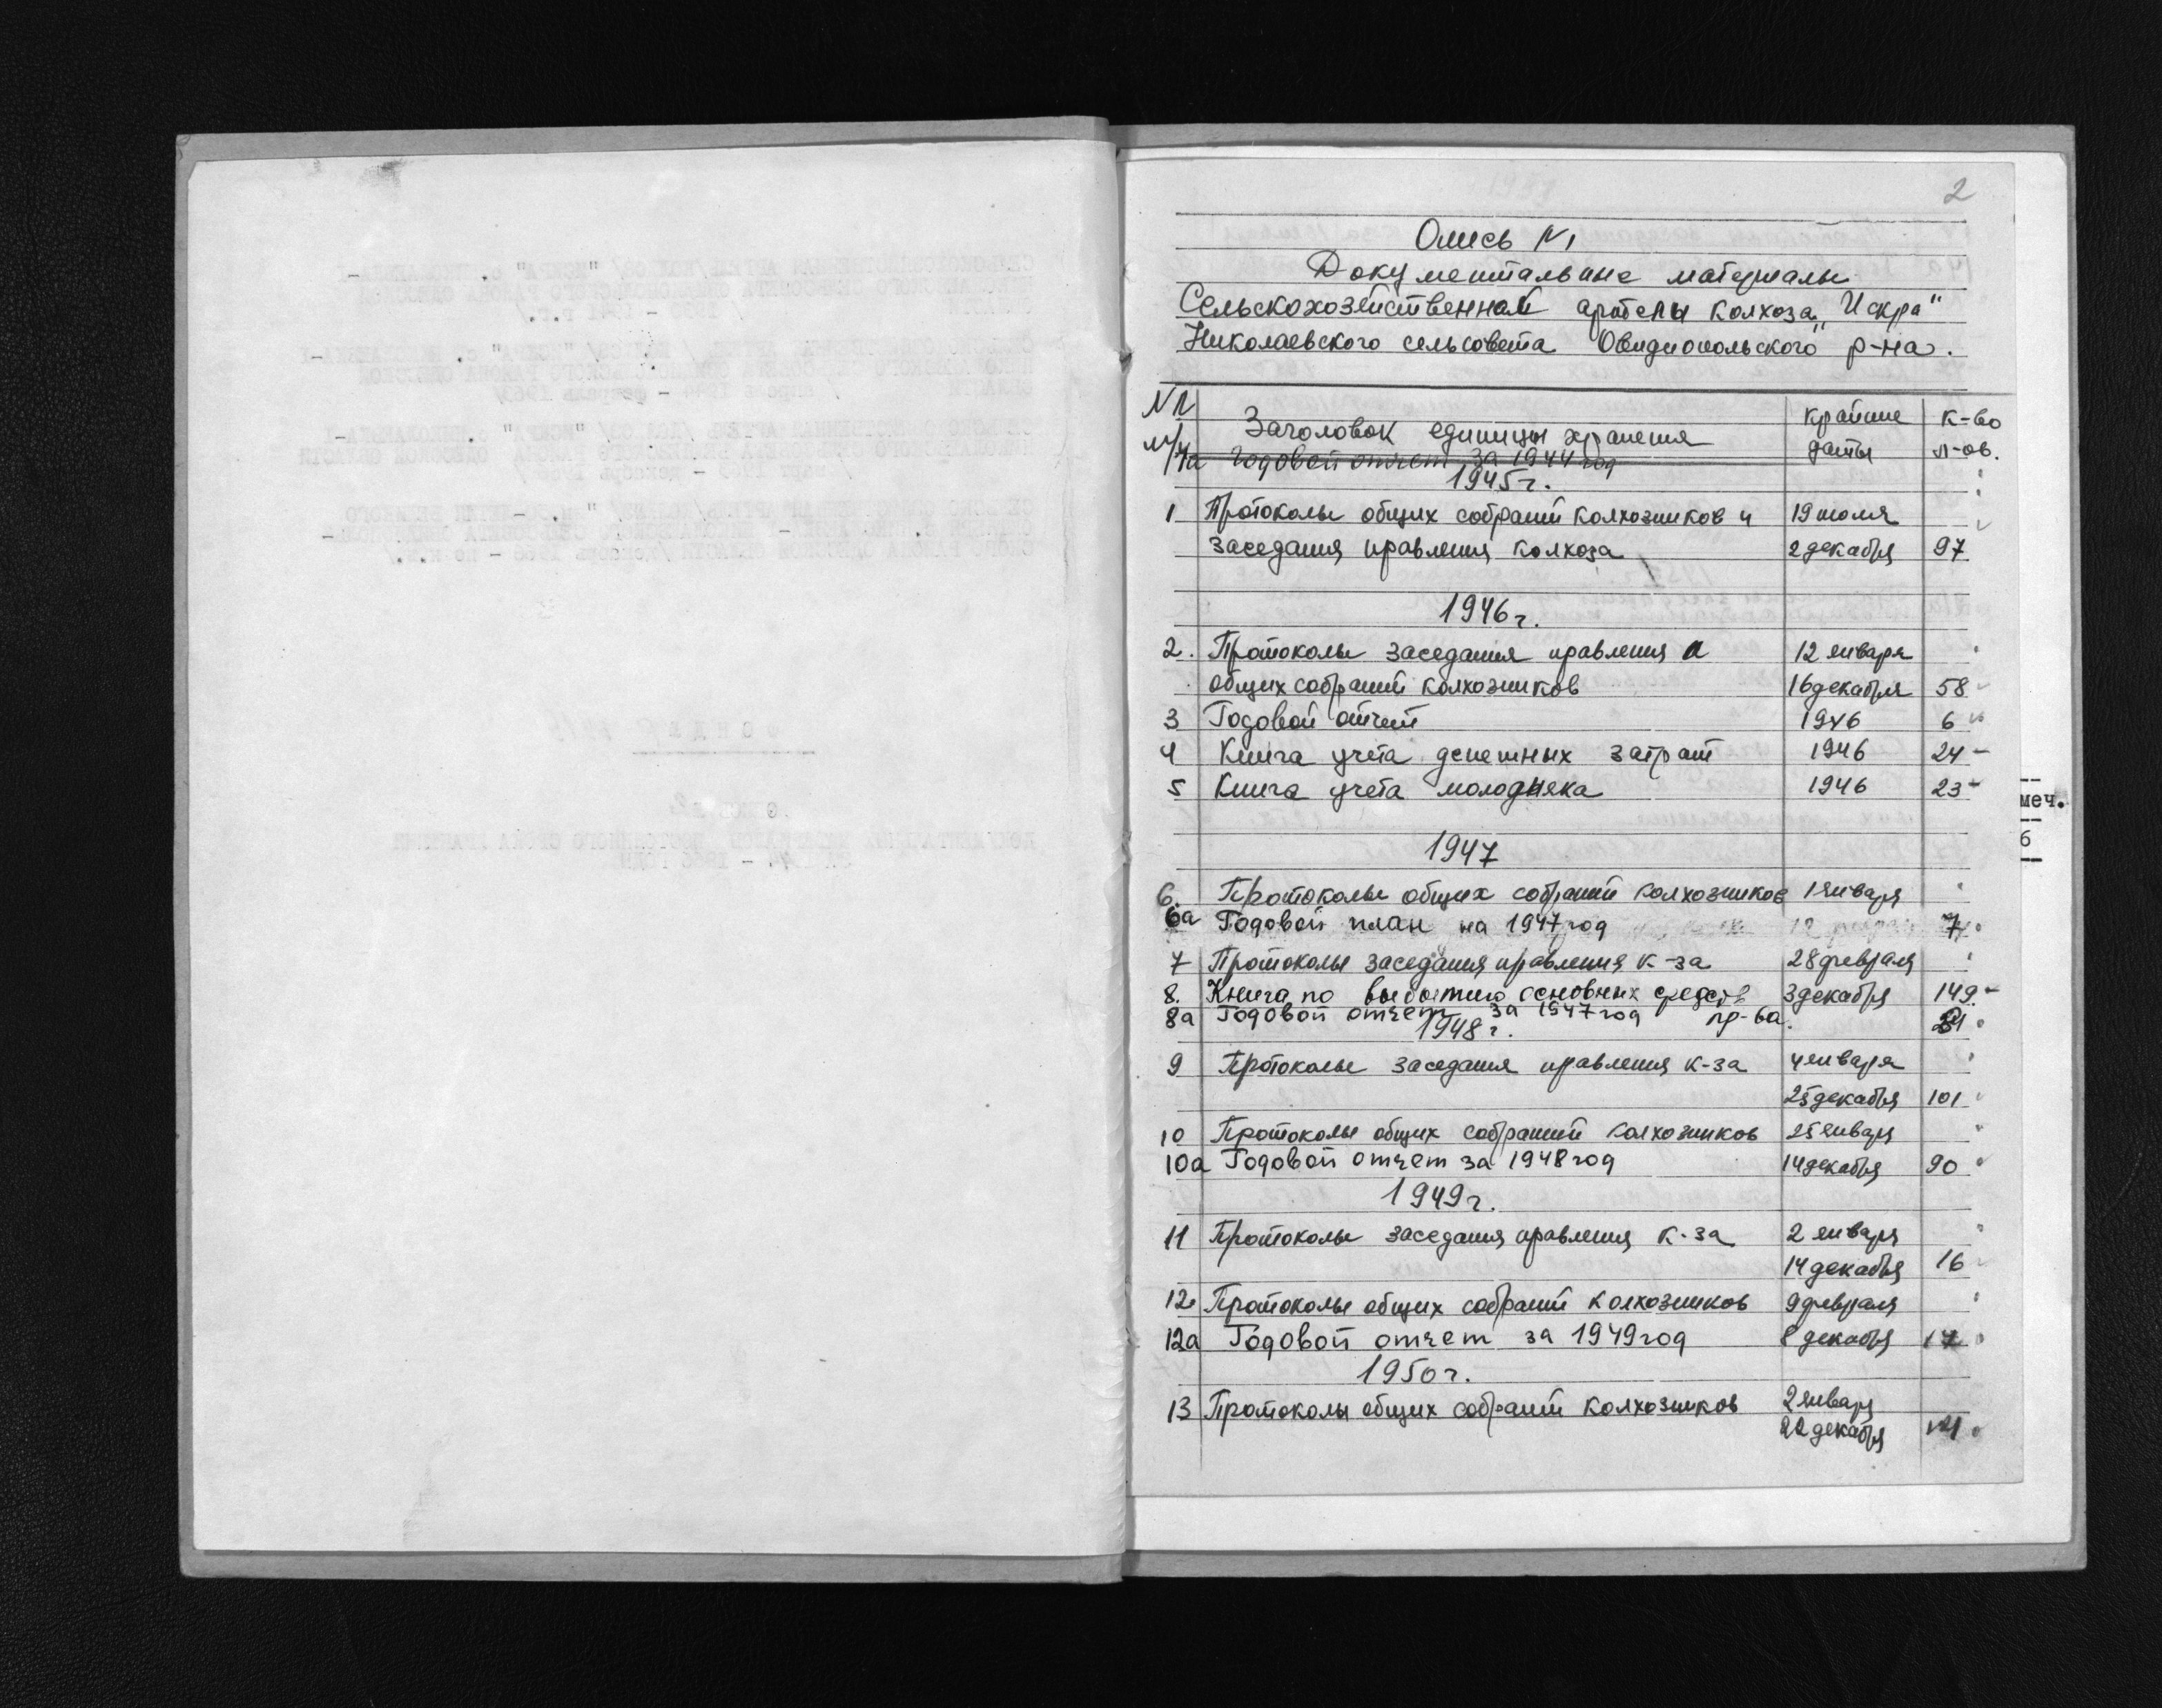 2
Опись №1
Документальные материалы
Сельскохозяйственной артелы колхоза „Искра"
Николаевского сельсовета Овидиопольского р-на.
Заголовок единицы хранения крайние даты к-во л-ов.
1а Годовой отчет за 1944 год
1945 г.
1 Протоколы общих собраний колхозников и 19 июля
заседания правления колхоза 2 декабря 97
1946 г.
2. Протоколы заседания правления и 12 января
общих собраний колхозников 16 декабря 58
3 Годовой отчет 1946 6
4 Книга учета денежных затрат 1946 24
5 Книга учета молодняка 1946 23
меч.
6
1947
6. Протоколы общих собраний колхозников 1 января
6а Годовой план на 1947 год
7 Протоколы заседания правления к-за 28 февраля
8. Книга по выбытию основных средств 3 декабря 149
8а Годовой отчет за 1947 год пр-ва
1948 г.
9 Протоколы заседания правления к-за 4 января
25 декабря 101
10 Протоколы общих собраний колхозников 25 января
10а Годовой отчет за 1948 год 14 декабря 90
1949 г.
11 Протоколы заседания правления к-за 2 января
14 декабря 16
12 Протоколы общих собраний колхозников 9 февраля
12а Годовой отчет за 1949 год 8 декабря
1950 г.
13 Протоколы общих собраний колхозников 2 января
22 декабря